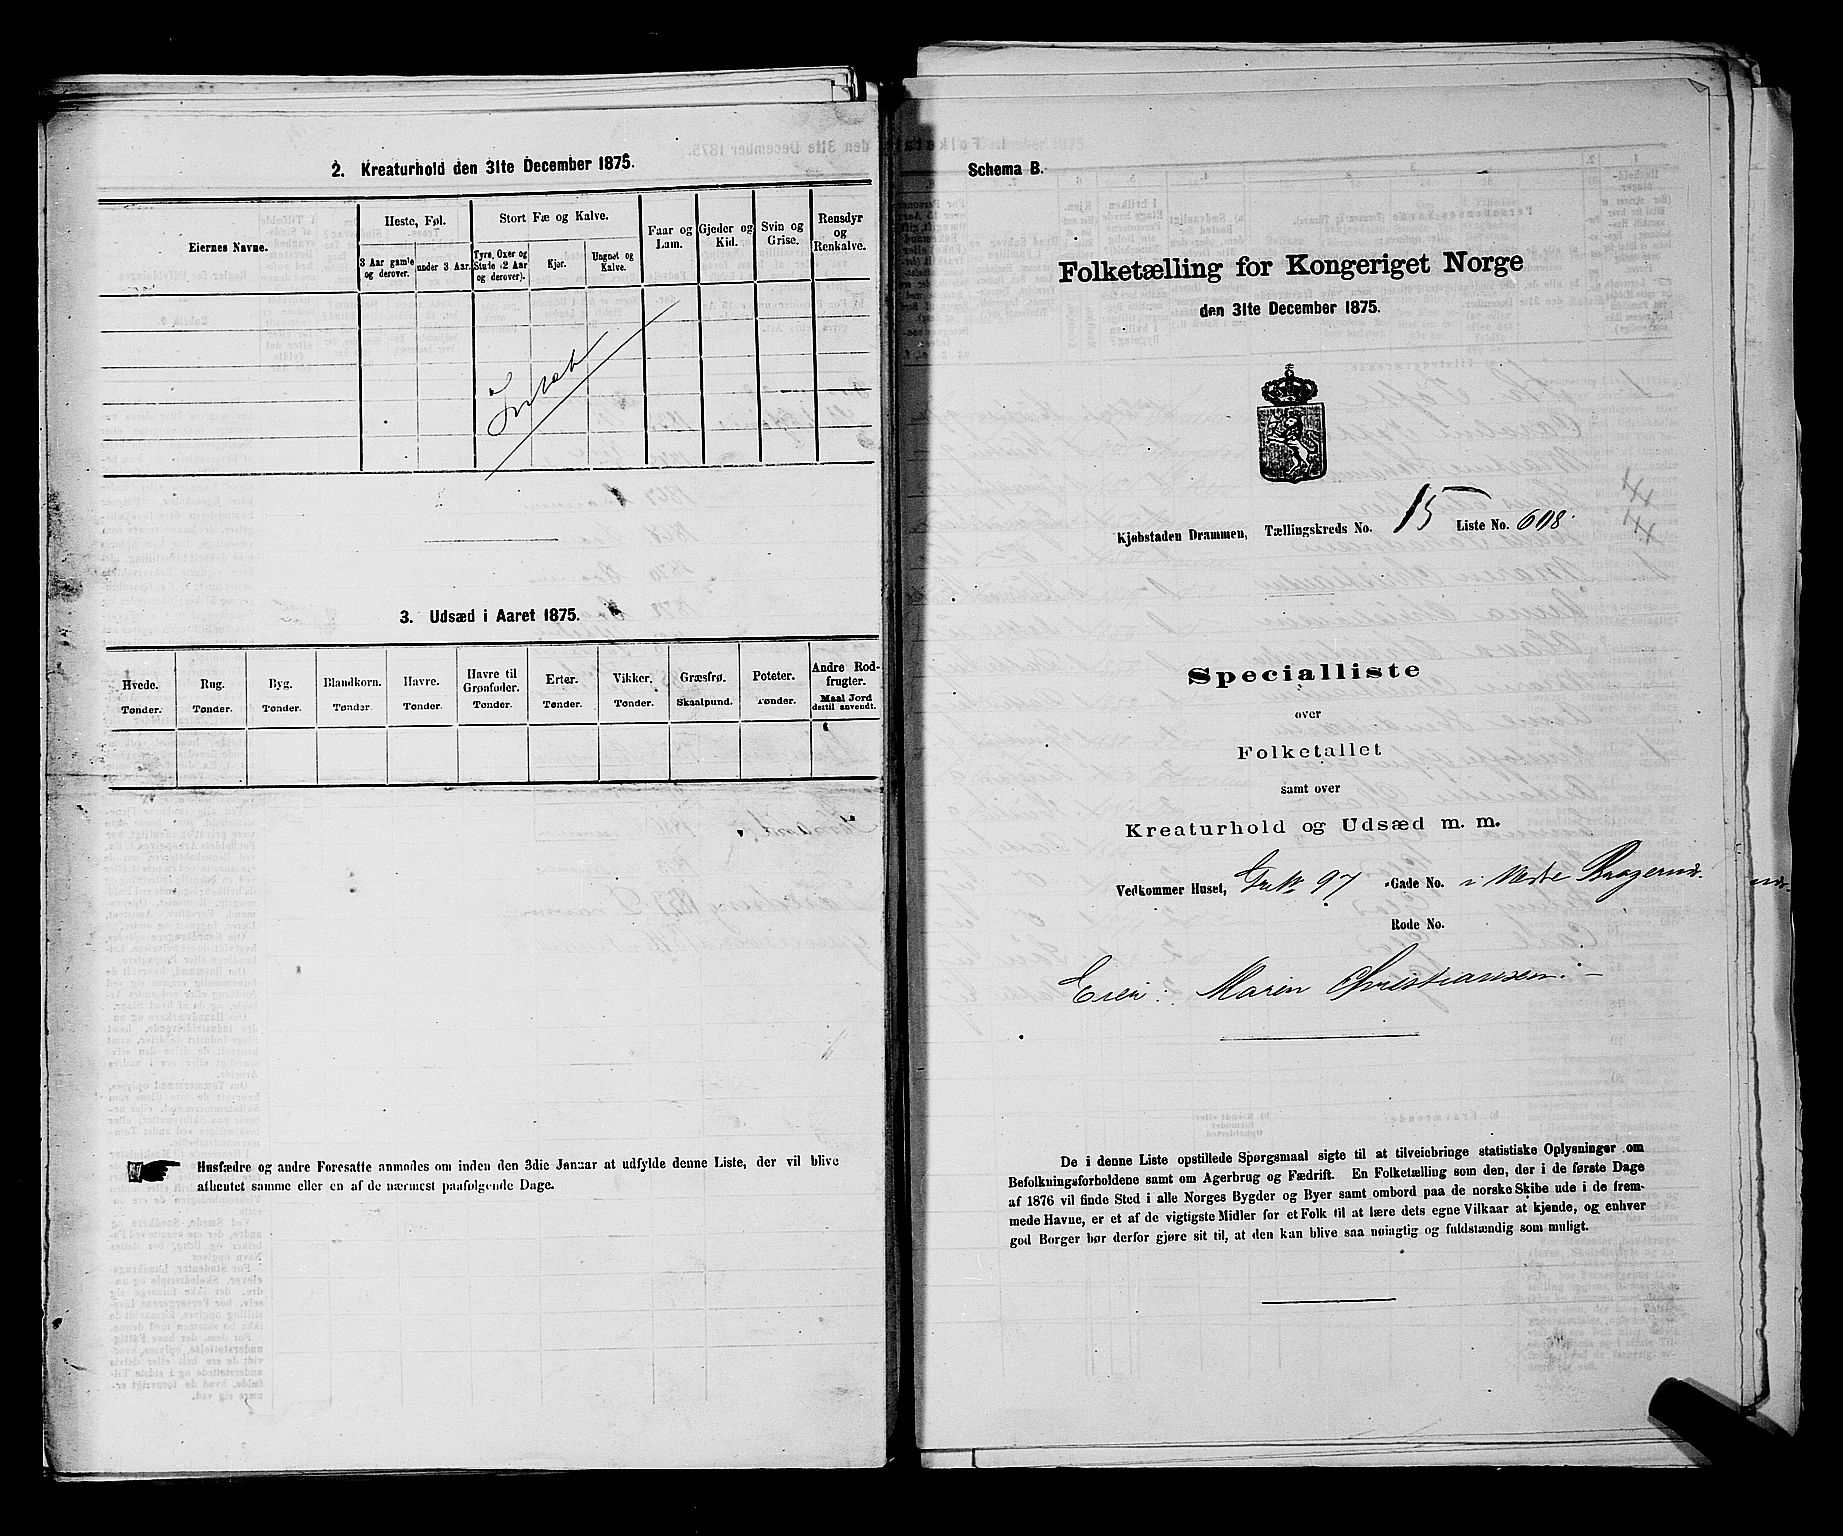 2. Kreaturhold den 31te December 1875.
Eiernes Navne.
Heste, Føl.
Stort Fæ og Kalve.
Faar og Lam.
Gjeder og Kid.
Svin og Grise.
Rensdyr og Renkalve.
3 Aar gamle og derover.
under 3 Aar.
Tyre, Oxer og Stude (2 Aar og derover).
Kjør.
Ungnøt og Kalve.
3. Udsæd i Aaret 1875.
Hvede. Rug. Byg. Blandkorn. Havre. Havre til Grønfoder. Erter. Vikker. Græsfrø. Poteter. Andre Rodfrugter.
Tønder. Tønder. Tønder. Tønder. Tønder. Tønder. Tønder. Tønder. Skaalpund. Tønder. Maal Jord dertil anvendt.
Husfædre og andre Foresatte anmodes om inden den 3die Januar at udfylde denne Liste, der vil blive
afhentet samme eller en af de nærmest paafølgende Dage.
Schema B.
Folketælling for Kongeriget Norge
den 31te December 1875.
Kjøbstaden Drammen, Tællingskreds No. 15 Liste No. 608.
Specialliste
over
Folketallet
samt over
Kreaturhold og Udsæd m. m.
Vedkommer Huset, Gr. No 97 Gade No. i Vestre Bragernæs.
Rode No.
Eier: Maren Christiansen.
De i denne Liste opstillede Spørgsmaal sigte til at tilveiebringe statistiske Oplysninger om
Befolkningsforholdene samt om Agerbrug og Fædrift. En Folketælling som den, der i de første Dage
af 1876 vil finde Sted i alle Norges Bygder og Byer samt ombord paa de norske Skibe ude i de frem-
mede Havne, er et af de vigtigste Midler for et Folk til at lære dets egne Vilkaar at kjende, og enhver
god Borger bør derfor gjøre sit til, at den kan blive saa nøiagtig og fuldstændig som muligt.